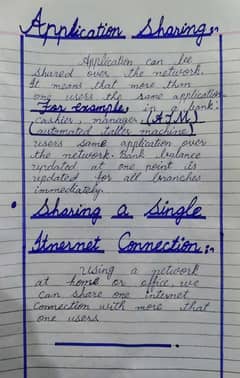 Application Sharing:-
Application can be
shared over the network.
It means that more than
one users the same application
For example, in a bank:
cashier, manager (ATM)
(automated teller machine)
users same application over
the network. Bank balance
updated at one point is
updated for all branches
immediately.
Sharing a Single
Iternet Connection:-
Using a network
at home or office, we
can share one internet
connection with more that
one users